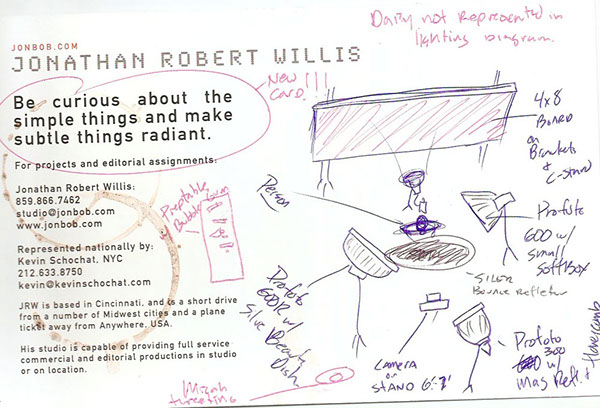 Daisy not Represented in
lighting Diagram.
JONBOB.COM
JONATHAN ROBERT WILLIS
NEW
CARD!!!
Be curious about the
simple things and make
subtle things radiant.
For projects and editorial assignments:
Jonathan Robert Willis:
859.866.7462
studio@jonbob.com
www.jonbob.com
Represented nationally by:
Kevin Schochat, NYC
212.633.8750
kevin@kevinschochat.com
JRW is based in Cincinnati, and is a short drive
from a number of Midwest cities and a plane
ticket away from Anywhere, USA.
His studio is capable of providing full service
commercial and editorial productions in studio
or on location.
Bubble
Person
4x8
BOARD
on
Brackets
&
C-stand
Profoto
600 w/
small
SoftBox
SILVER
Bounce Reflector
Profoto
600R w/
Silver Beauty
Dish
CAMERA
on
STAND 6'-7'
Profoto
300
w/
Mag Refl. &
Honeycomb
Micah